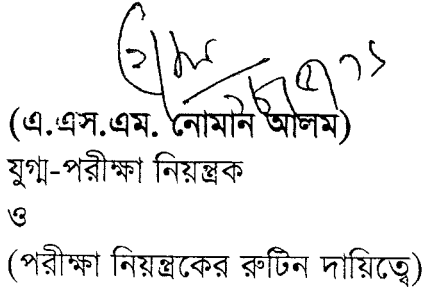 (এ.এস.এম. নোমান আলম)
যুগ্ম-পরীক্ষা নিয়ন্ত্রক
ও
(পরীক্ষা নিয়ন্ত্রকের রুটিন দায়িত্বে)